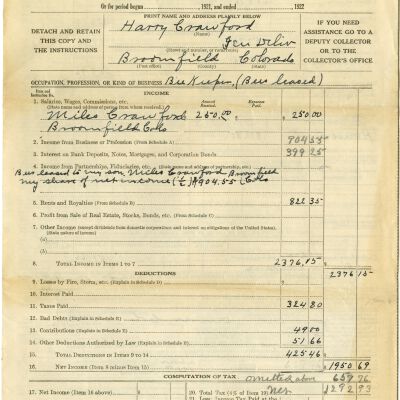 Or for the period begun , 1921, and ended , 1922
PRINT NAME AND ADDRESS PLAINLY BELOW
DETACH AND RETAIN THIS COPY AND THE INSTRUCTIONS
Harry Crawford
(Name)
Gen Deliv
(Street and number, or rural route)
Broomfield Colorado
(Post office) (County) (State)
IF YOU NEED ASSISTANCE GO TO A DEPUTY COLLECTOR OR TO THE COLLECTOR'S OFFICE
OCCUPATION, PROFESSION, OR KIND OF BUSINESS Bee Keeper, (Bees leased)
INCOME
1. Salaries, Wages, Commissions, etc.
(State name and address of person from whom received.) Amount Received. Expenses Paid.
Miles Crawford 250.00 250.00
Broomfield Colo
2. Income from Business or Profession (From Schedule A) 904 55
3. Interest on Bank Deposits, Notes, Mortgages, and Corporation Bonds 399 25
4. Income from Partnerships, Fiduciaries, etc. (State name and address of partnership, etc.)
Bees leased to my son Miles Crawford Broomfield
my share of net income (½) 904.55 Colo
6. Rents and Royalties (From Schedule B) 822 35
6. Profit from Sale of Real Estate, Stocks, Bonds, etc. (From Schedule C)
7. Other Income (except dividends from domestic corporations and interest on obligations of the United States).
(State nature of income)
(a)
(b)
8. TOTAL INCOME IN ITEMS 1 TO 7 2376.15 2376 15
DEDUCTIONS
9. Losses by Fire, Storm, etc. (Explain in Schedule D)
10. Interest Paid
11. Taxes Paid 324 80
12. Bad Debts (Explain in Schedule F)
13. Contributions (Explain in Schedule F) 49 00
14. Other Deductions Authorized by Law (Explain in Schedule F) 51 66
15. TOTAL DEDUCTIONS IN ITEMS 9 TO 14 425 46
16. NET INCOME (Item 8 minus Item 15) 1950 69
COMPUTATION OF TAX omitted above 657 76
17. Net Income (Item 16 above) 20. Total Tax (4% of Item 19) 1292 93